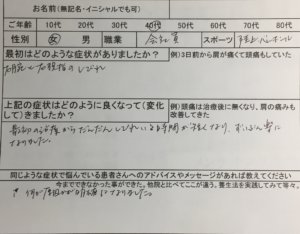 お名前(無記名・イニシャルでも可)
ご年齢 10代 20代 30代 40代 50代 60代 70代 80代
性別 女 男 職業 会社員 スポーツ
最初はどのような症状がありましたか? 例)3日前から肩が痛くて頭痛もしていた
右腕と右親指のしびれ
上記の症状はどのように良くなって(変化して)きましたか? 例)頭痛は治療後に無くなり、肩の痛みも改善してきた
最初の治療からだんだんしびれいる時間が
なりました。
同じような症状で悩んでいる患者さんへのアドバイスやメッセージがあれば教えてください
今までできなかった事ができた。他院と比べてここが違う。養生法を実践してみて等々。
なりました。